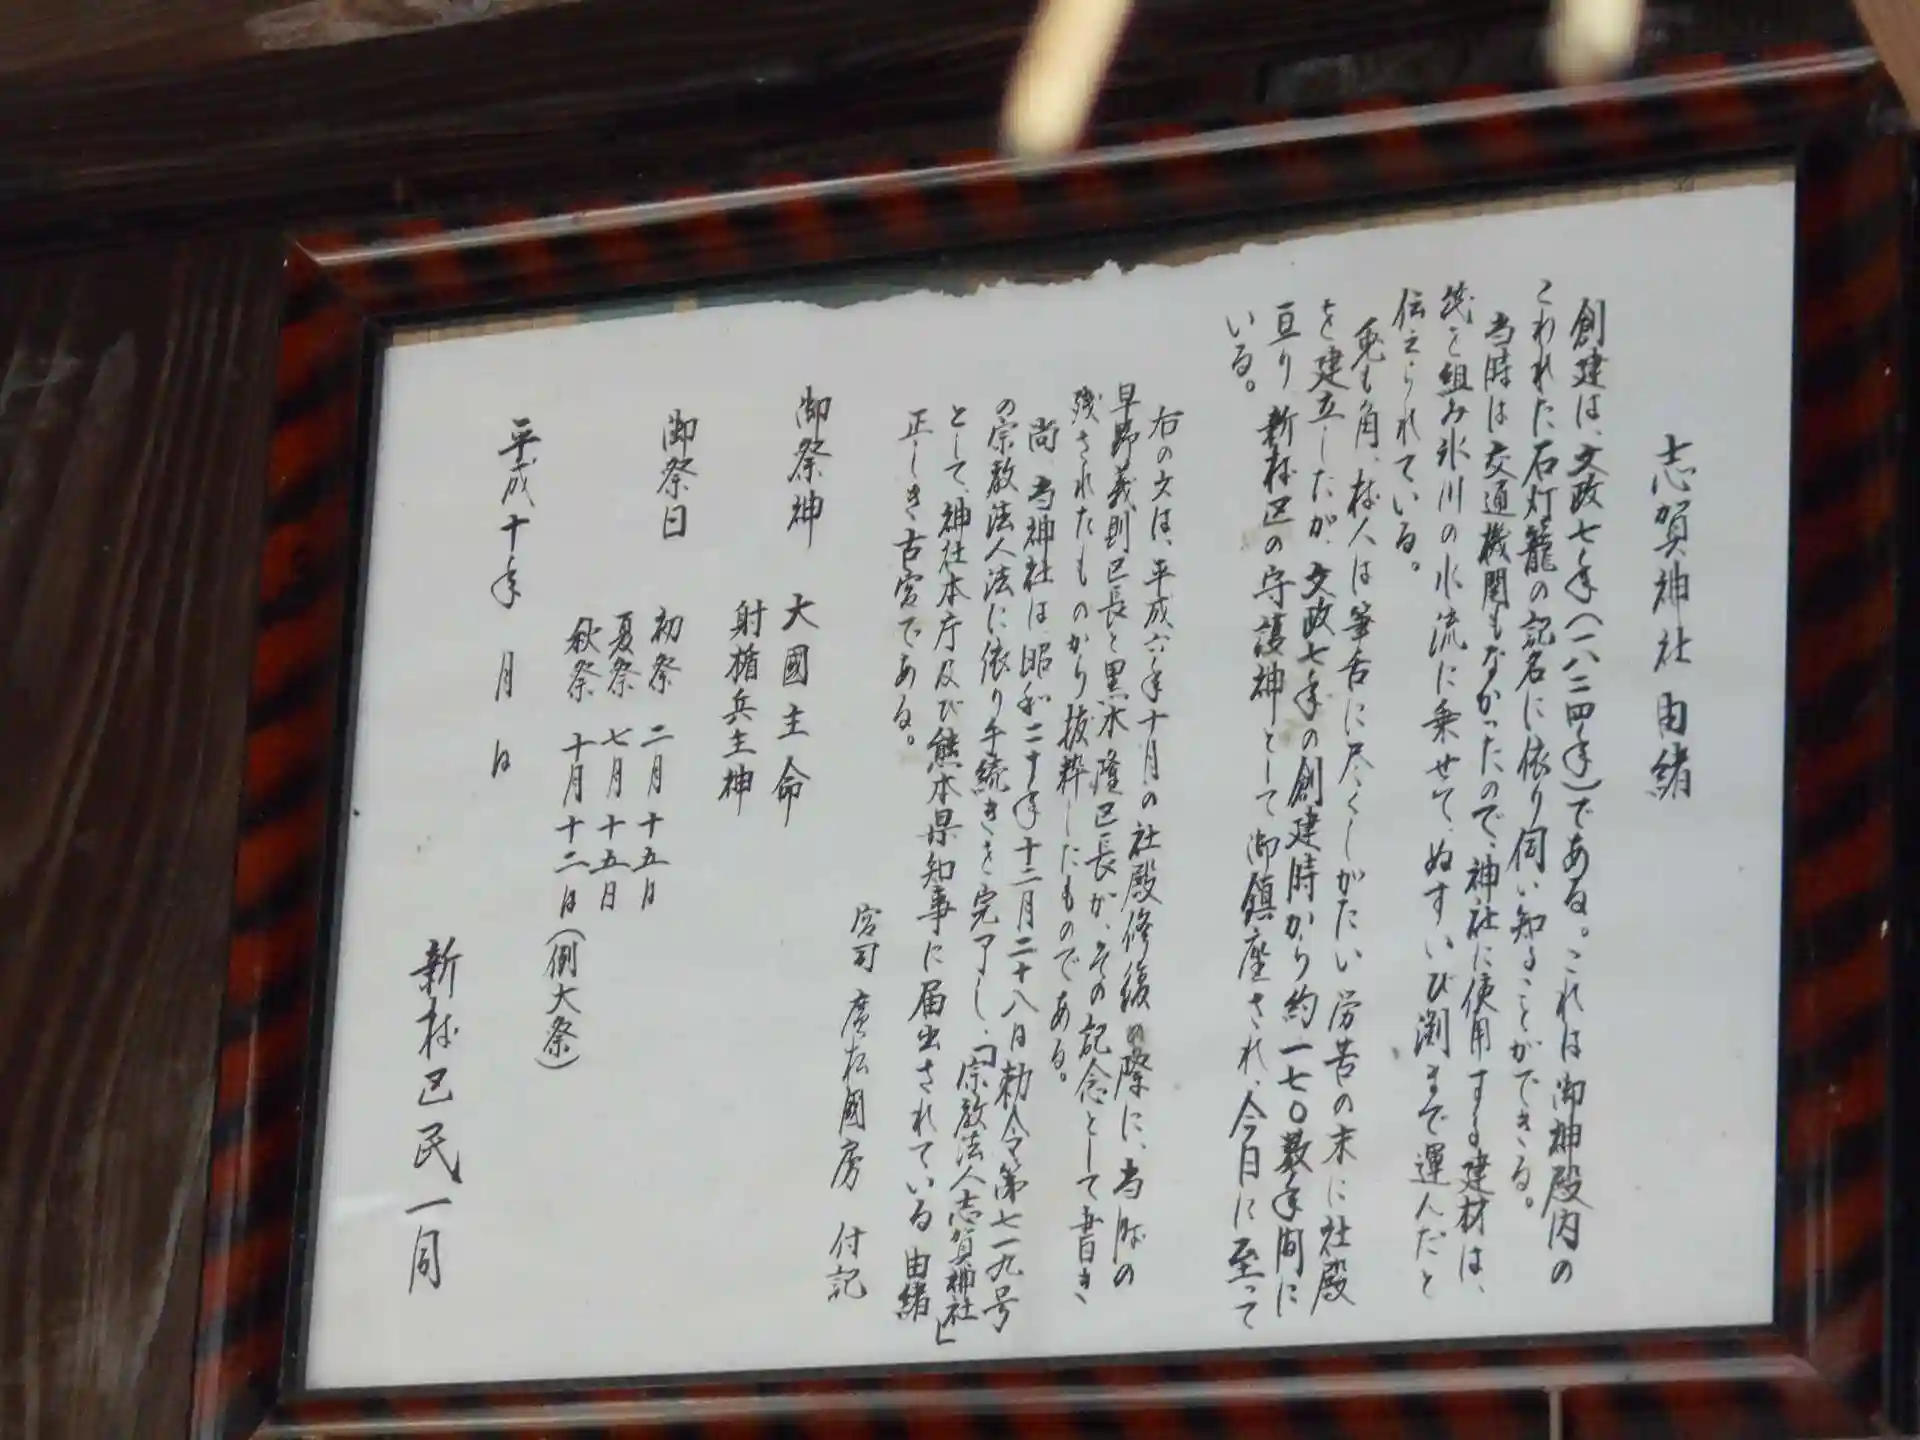 志賀神社 由緒
創建は、文政七年(一八二四年)である。これは御神殿内の
こわれた石灯籠の記名に依り伺い知ることができる。
当時は交通機関もなかったので、神社に使用する建材は、
筏を組み氷川の水流に乗せて、ぬすいび渕まで運んだと
伝えられている。
兎も角、村人は筆舌に尽くしがたい労苦の末に社殿
を建立したが、文政七年の創建時から約一七〇数年間に
亘り、新村区の守護神として御鎮座され、今日に至って
いる。
右の文は、平成六年十月の社殿修復の際に、当時の
早野義則区長と黒木隆区長が、その記念として書き
残されたものから抜粋したものである。
尚、当神社は、昭和二十年十二月二十八日勅令第七一九号
の宗教法人法に依り手続きを完了し、「宗教法人志賀神社」
として、神社本庁及び熊本県知事に届出されている由緒
正しき古宮である。
宮司 廣松國房 付記
御祭神 大國主命
射楯兵主神
御祭日 初祭 二月十五日
夏祭 七月十五日
秋祭 十月十二日(例大祭)
平成十年 月 日
新村区民一同